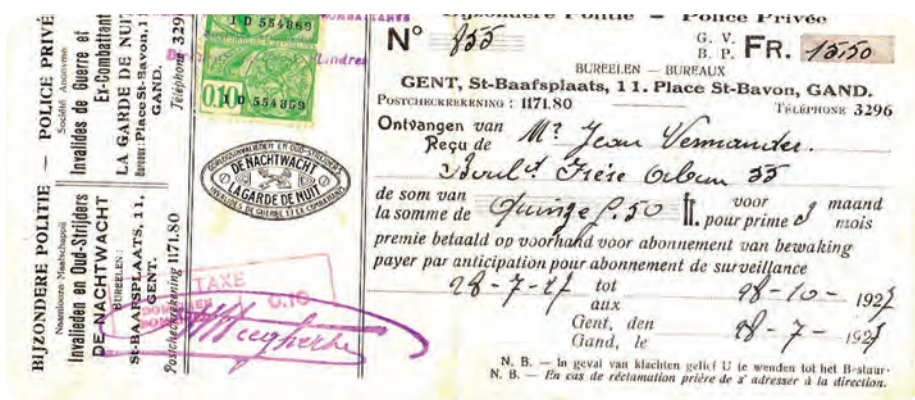 BIJZONDERE POLITIE — POLICE PRIVÉ
Naamlooze Maatschappij Société Anonyme
Invalieden en Oud-Strijders Invalides de Guerre et Ex-Combattant
DE NACHTWACHT LA GARDE DE NUIT
BUREELEN: Bureau: Place St-Bavon, 11
St-BAAFSPLAATS, 11, GENT. GAND.
Postcheckrekening 1171.80 Téléphone 329
1 D 554869
0.10 1 D 554869
OORLOGSINVALIEDEN EN OUD-STRIJDERS
DE NACHTWACHT
LA GARDE DE NUIT
INVALIDES DE GUERRE ET EX-COMBATTANTS
TAXE
0.10
Bijzondere Politie — Police Privée
N° 855 G. V. B. P. FR. 15,50
BUREELEN — BUREAUX
GENT, St-Baafsplaats, 11. Place St-Bavon, GAND.
POSTCHECKREKENING : 1171.80 TÉLÉPHONE 3296
Ontvangen van Reçu de Mr Jean Vermander.
Boult Frère Orban 55
de som van la somme de Quinze f. 50 fr. voor pour prime 3 maand mois
premie betaald op voorhand voor abonnement van bewaking
payer par anticipation pour abonnement de surveillance
28-7-27 tot aux 28-10-1927
Gent, den Gand, le 28-7-1927
N. B. — In geval van klachten gelief U te wenden tot het Bestuur.
N. B. — En cas de réclamation prière de s' adresser à la direction.